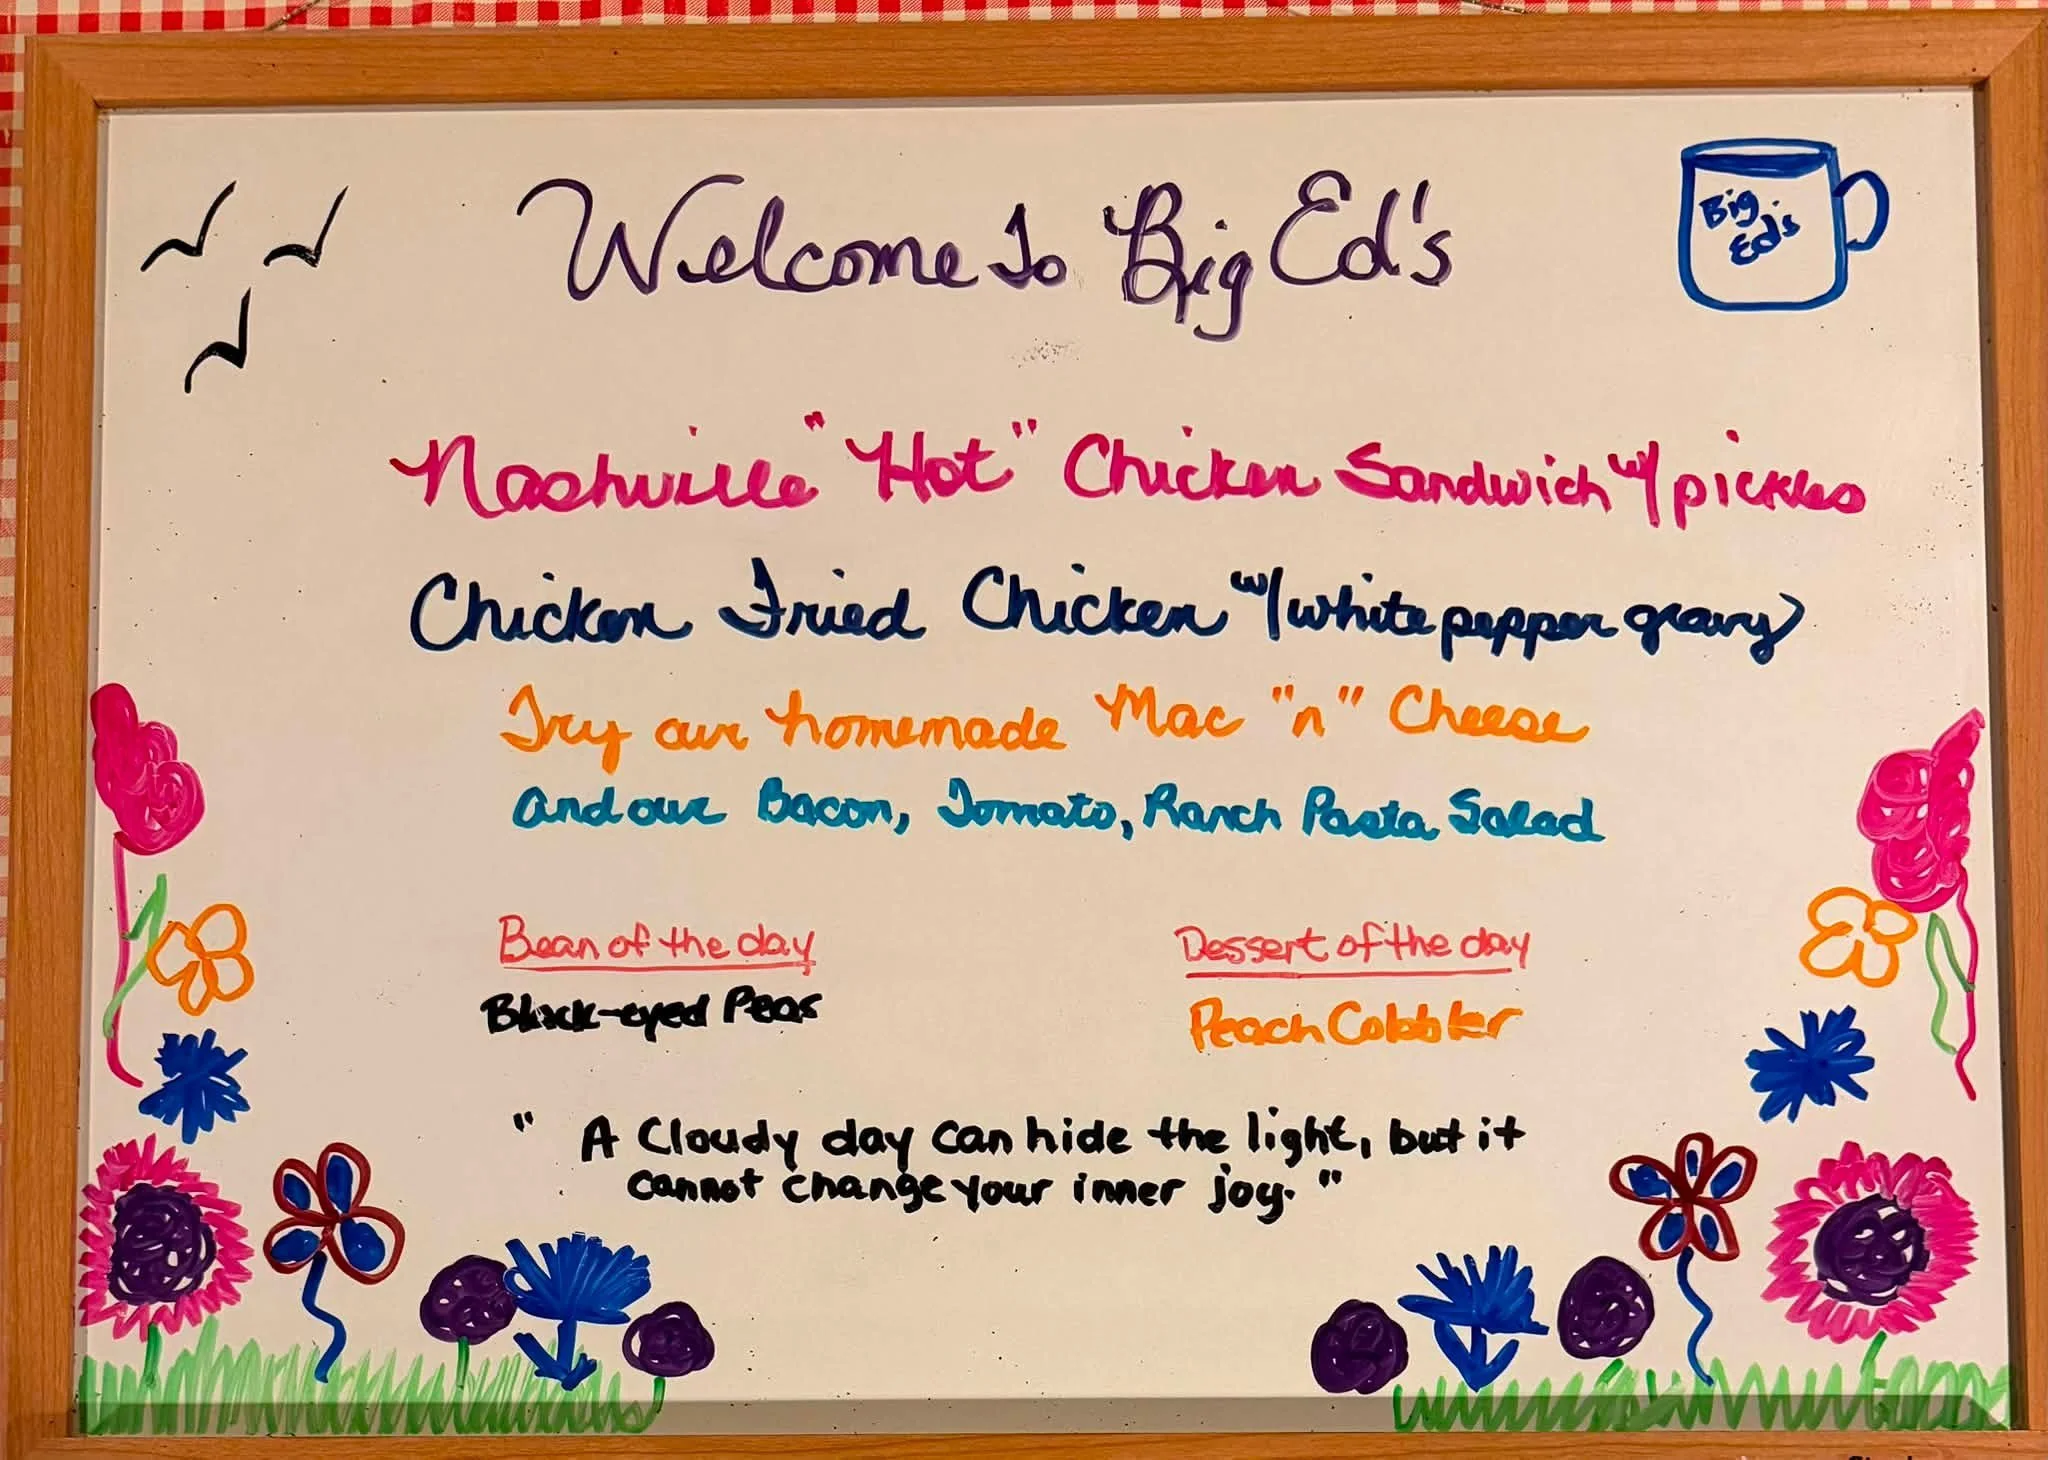 Welcome To Big Ed's
Big
Ed's
Nashville "Hot" Chicken Sandwich w/ pickles
Chicken Fried Chicken w/ white pepper gravy
Try our homemade Mac "n" Cheese
and our Bacon, Tomato, Ranch Pasta Salad
Bean of the day
Black-eyed Peas
Dessert of the day
Peach Cobbler
" A Cloudy day can hide the light, but it
cannot change your inner joy. "